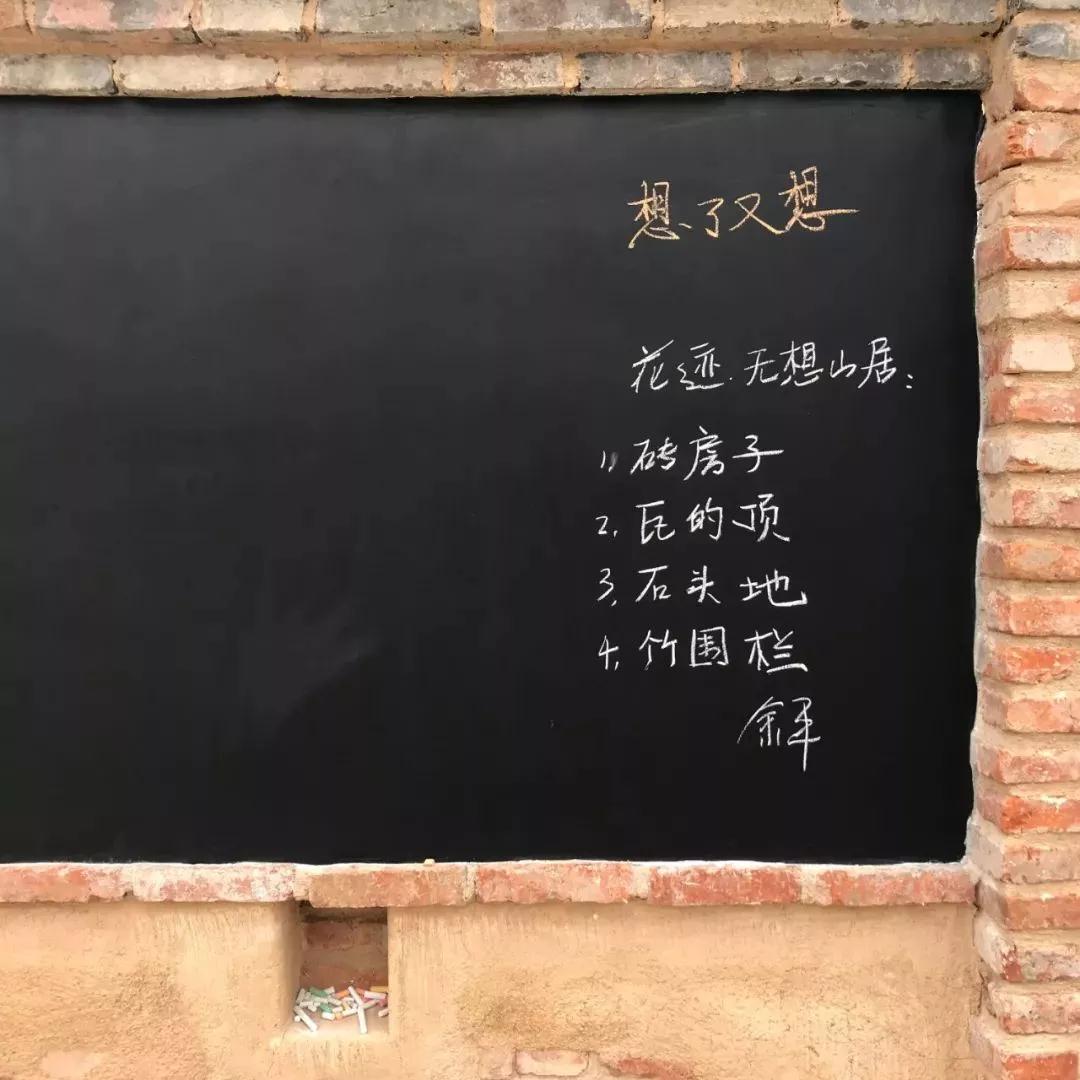 想了又想
花迹.无想山居:
1,砖房子
2,瓦的顶
3,石头地
4,竹围栏
余平